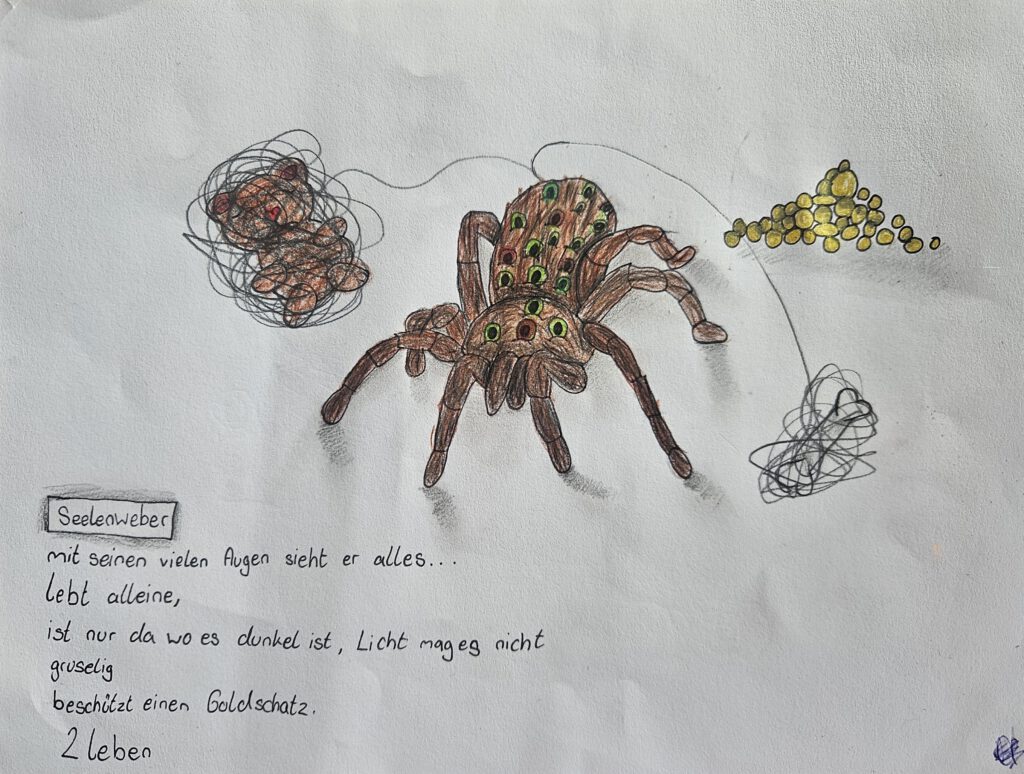 Seelenweber
mit seinen vielen Augen sieht er alles...
lebt alleine,
ist nur da wo es dunkel ist, Licht mag es nicht
gruselig
beschützt einen Goldschatz.
2 leben